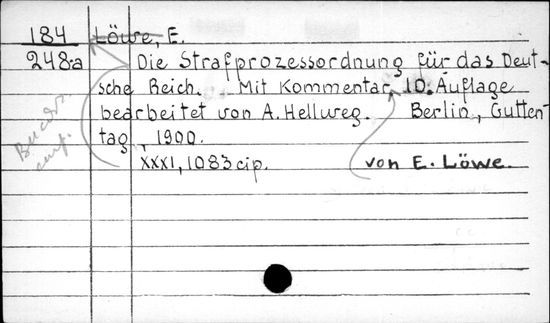 184 Löwe, E.
248a Die Strafprozessordnung für das Deut-
sche Reich. Mit Kommentar, 10. Auflage
bearbeitet von A. Hellweg. Berlin, Gutten-
tag, 1900.
XXXI, 1083 стр. von E. Löwe.